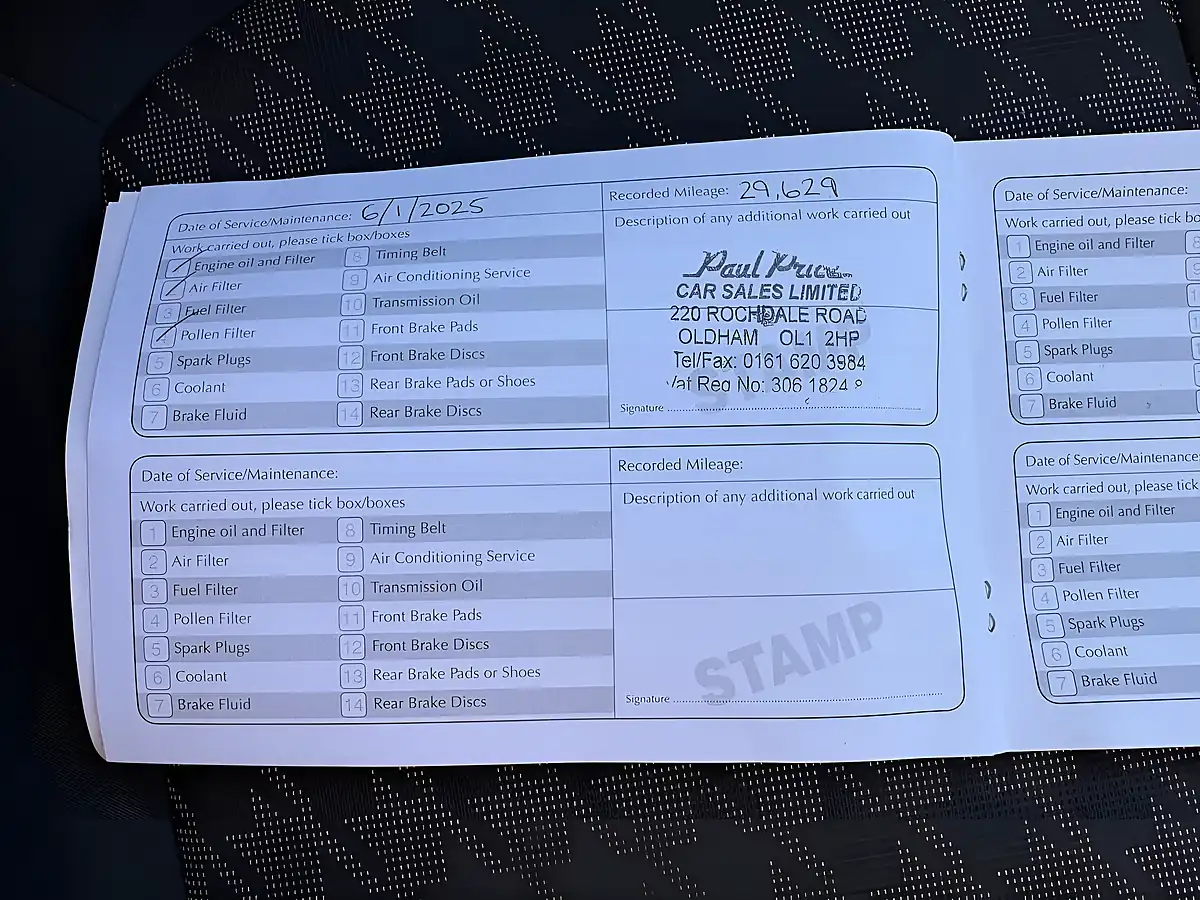 Date of Service/Maintenance: 6/1/2025
Recorded Mileage: 29,629
Work carried out, please tick box/boxes
Engine oil and Filter
Air Filter
3 Fuel Filter
Pollen Filter
5 Spark Plugs
6 Coolant
7 Brake Fluid
8 Timing Belt
9 Air Conditioning Service
10 Transmission Oil
11 Front Brake Pads
12 Front Brake Discs
13 Rear Brake Pads or Shoes
14 Rear Brake Discs
Description of any additional work carried out
Paul
CAR SALES LIMITED
220 ROCHDALE ROAD
OLDHAM OL1 2HP
Tel/Fax: 0161 620 3984
Vat Reg No: 306 1824
Signature
Date of Service/Maintenance:
Recorded Mileage:
Work carried out, please tick box/boxes
1 Engine oil and Filter
2 Air Filter
3 Fuel Filter
4 Pollen Filter
5 Spark Plugs
6 Coolant
7 Brake Fluid
8 Timing Belt
9 Air Conditioning Service
10 Transmission Oil
11 Front Brake Pads
12 Front Brake Discs
13 Rear Brake Pads or Shoes
14 Rear Brake Discs
Description of any additional work carried out
STAMP
Signature
Date of Service/Maintenance:
Work carried out, please tick
1 Engine oil and Filter
2 Air Filter
3 Fuel Filter
4 Pollen Filter
5 Spark Plugs
6 Coolant
7 Brake Fluid
Date of Service/Maintenance
Work carried out, please tick
1 Engine oil and Filter
2 Air Filter
3 Fuel Filter
4 Pollen Filter
5 Spark Plugs
6 Coolant
7 Brake Fluid